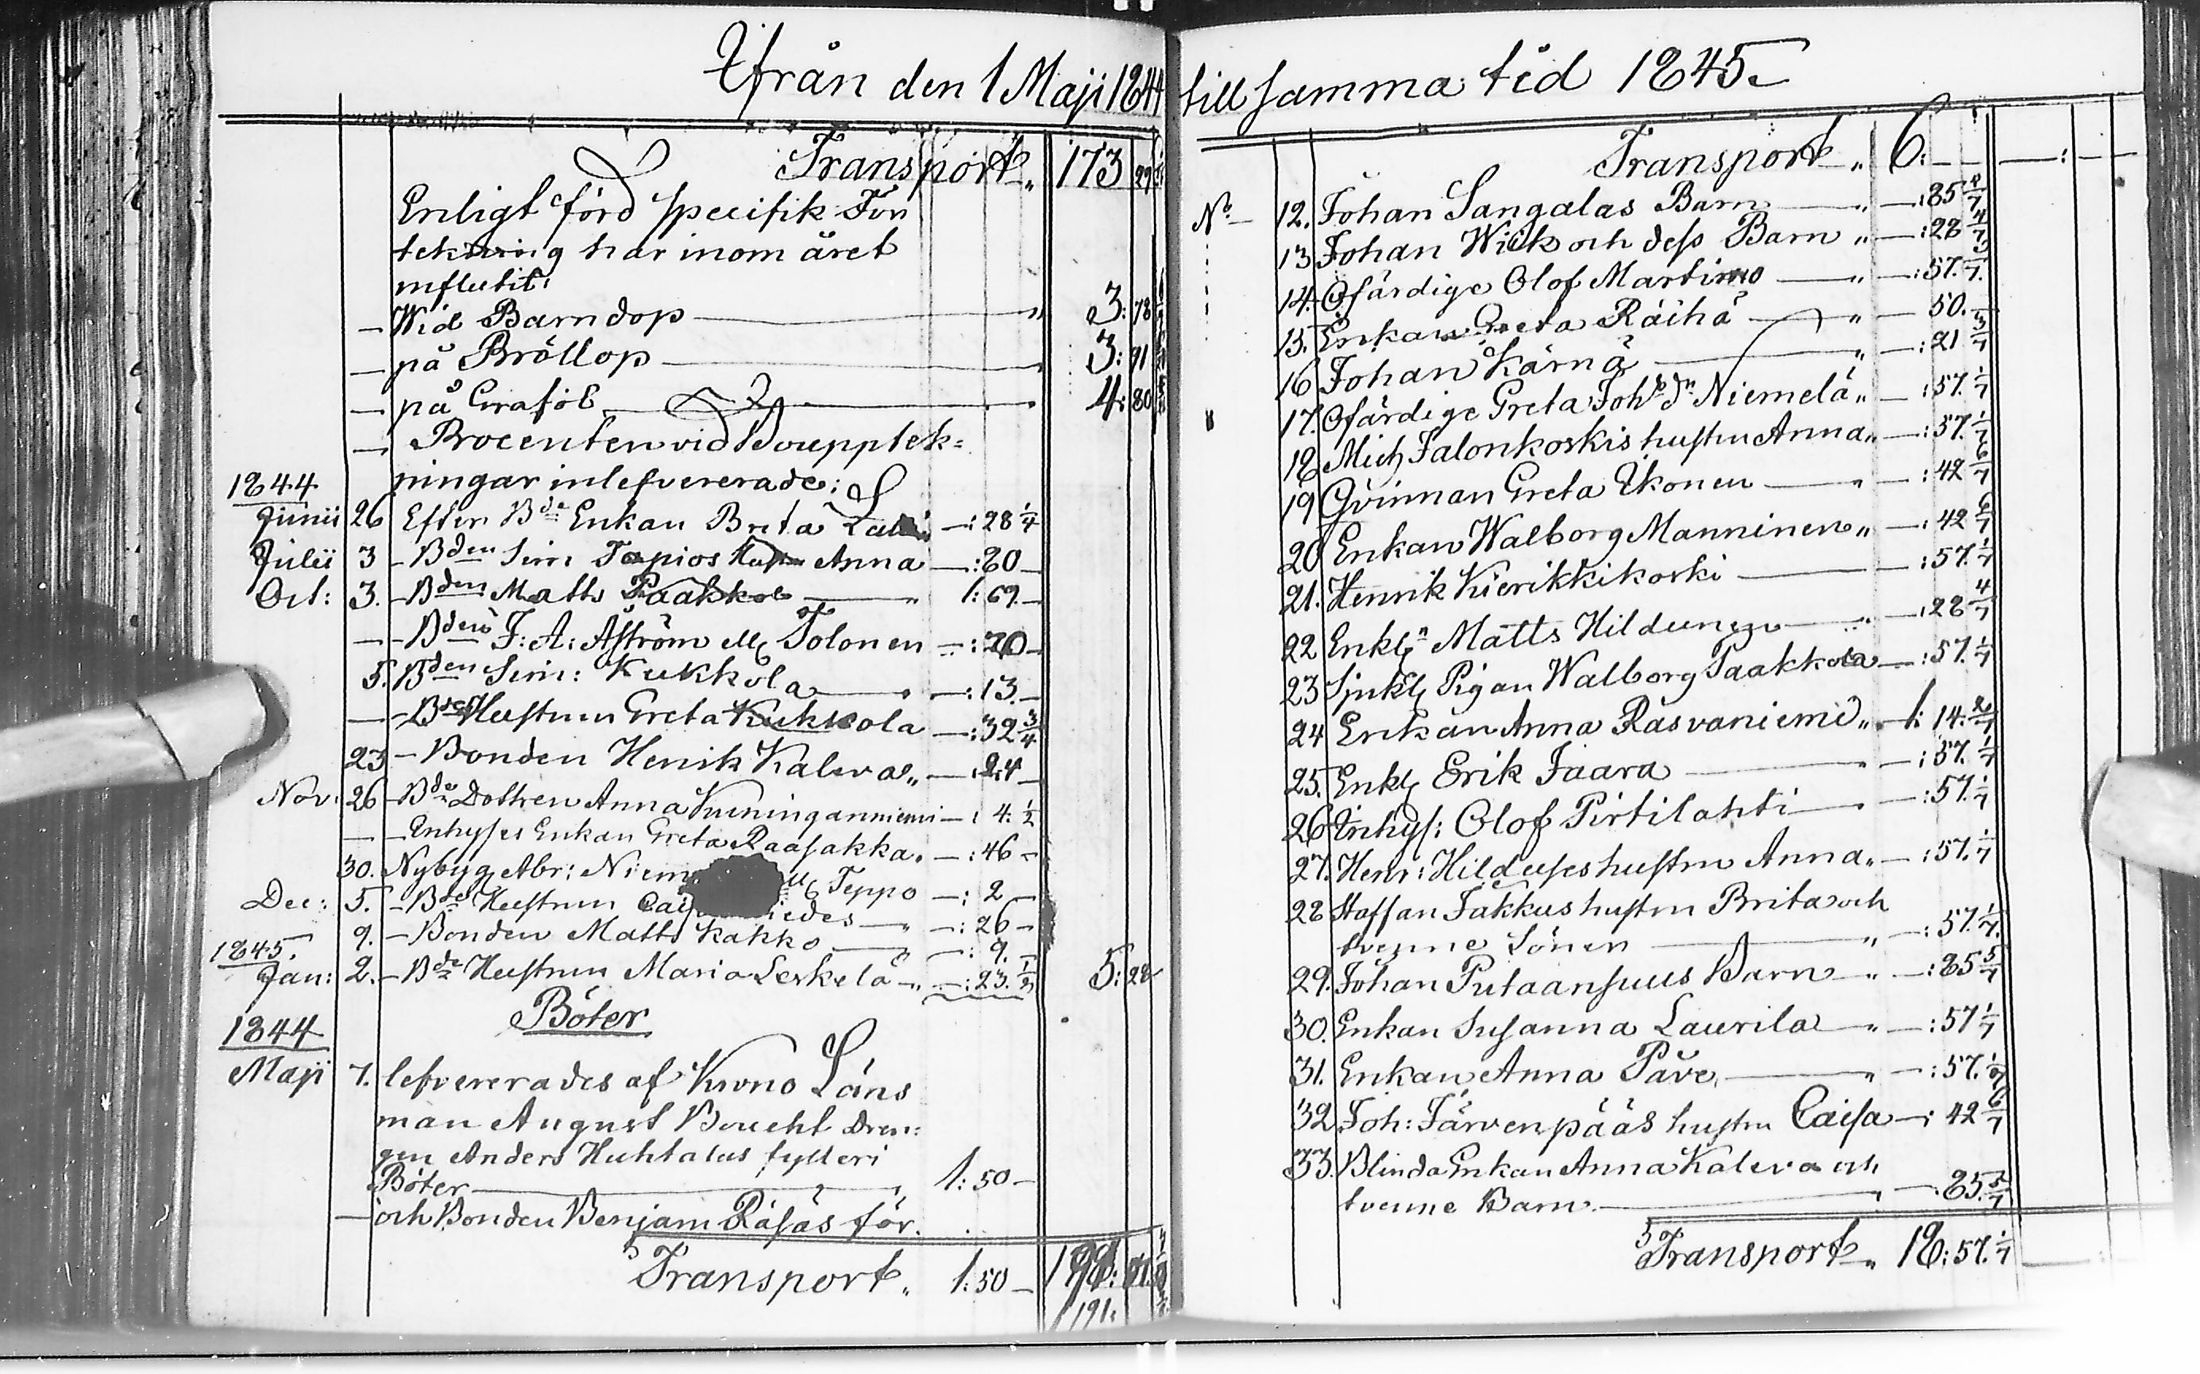 Ifrån den 1 Maji 1844
Transport „ 173 29
Enligt förd specifik För
tekning har inom året
influtit:
— Wid Barndop — „ 3: 78
— på Bröllop — 3: 91
— på Graföl — 4: 80
— Procenten vid Boupptek=
ningar inlefvererade:
1844
Junii 26 Efter Bde Enkan Brita —: 28 1/4
Julii 3 — Bden Sim Tapios Hustru Anna —: 20 —
Oct: 3. — Bden Matts Paakkola — „ 1: 69. —
— — Bden J: A: Åström ell Tolonen —: 20 —
5. Bden Sim: Kukkola — „ —: 13. —
— — Bde Hustrun Greta Kukkola —: 32 3/4
23 — Bonden Henrik Kaleva „ —: 24 —
Nov: 26 — Bde Dottren Anna Kuninganniemi —: 4: 1/2
— — Enhyses Enkan Greta Raasakka. —: 46 —
30. Nybyg Abr: Niem ell Teppo —: 2 —
Dec: 5. — Bde Hustrun — „ —: 26 —
9. — Bonden Matts Kakko — „ —: 9. —
1845.
Jan: 2. — Bde Hustrun Maria Leskelä — „ —: 23. 1/2 5: 28
Böter
1844
Maji 7. lefvererades af Kuono Läns
man August Boucht Dren:
gen Anders Huhtalas fylleri
Böter — „ 1: 50 —
— och Bonden Benjam Räsäs för
Transport „ 1: 50 —
191:
till samma tid 1845.
Transport „ 6: — — — : — —
No — 12. Johan Sangalas Barn — „ —: 85 5/7
13 Johan Wiik och dess Barn „ —: 28 4/7
14. Ofärdige Olof Martimo — „ —: 57. 1/7
15. Enkan Greta Räihä — „ — 50. —
16 Johan Kärnä — „ —: 21 3/7
17. Ofärdige Greta Johs dr Niemelä „ —: 57. 1/7
18 Mich Jalonkoskis hustru Anna „ —: 57. 1/7
19 Qvinnan Greta Ikonen — „ —: 42 6/7
20 Enkan Walborg Manninen „ —: 42 6/7
21. Henrik Kierikkikoski — : 57. 1/7
22 Enkln Matts Hildunen — „ —: 28 4/7
23 Sjukl Pigan Walborg Paakkola —: 57. 1/7
24 Enkan Anna Räsvaniemi „ — 1: 14. 2/7
25. Enkl Erik Jaara — „ —: 57. 1/7
26 Inhys: Olof Pirtilahti — „ —: 57. 1/7
27. Henr: Hilduses hustru Anna „ —: 57. 1/7
28 Staffan Jakkus hustru Brita och
tvenne Söner — „ —: 57. 1/7
29. Johan Putaansuus Barn — „ —: 85 5/7
30. Enkan Susanna Laurila — „ —: 57 1/7
31. Enkan Anna Päve — „ —: 57. 1/7
32 Joh: Järvenpääs hustru Caisa —: 42 6/7
33. Blinda Enkan Anna Kaleva och
tvenne Barn — „ —: 85. 5/7
Transport „ 18: 57. 1/7